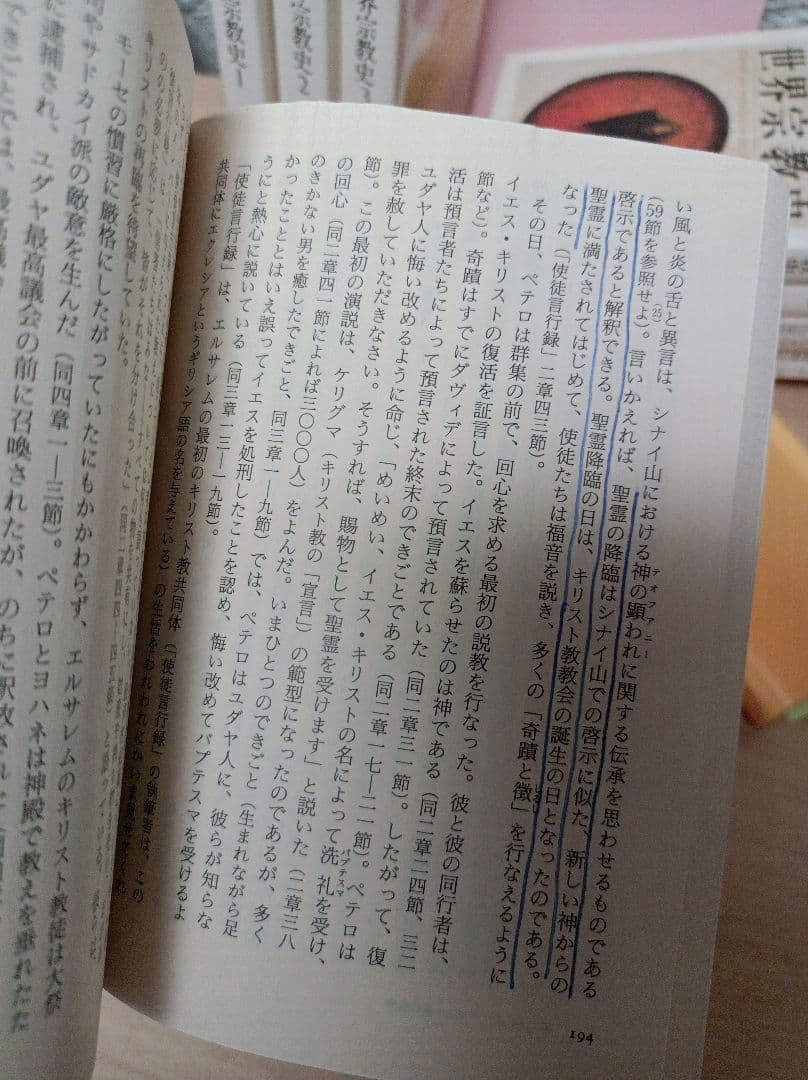 界宗教史 1
界宗教史 2
世界宗教史
い風と炎の舌と異言は、シナイ山における神の顕われ(テオファニー)に関する伝承を思わせるものである
(59節を参照せよ)(25)。言いかえれば、聖霊の降臨はシナイ山での啓示に似た、新しい神からの
啓示であると解釈できる。聖霊降臨の日は、キリスト教教会の誕生の日となったのである。
聖霊に満たされてはじめて、使徒たちは福音を説き、多くの「奇蹟と徴(しるし)」を行なえるように
なった(「使徒言行録」二章四三節)。
その日、ペテロは群集の前で、回心を求める最初の説教を行なった。彼と彼の同行者は、
イエス・キリストの復活を証言した。イエスを蘇らせたのは神である(同二章二四節、三二
節など)。奇蹟はすでにダヴィデによって預言されていた(同二章三一節)。したがって、復
活は預言者たちによって預言された終末のできごとである(同二章一七―二一節)。ペテロは
ユダヤ人に悔い改めるように命じ、「めいめい、イエス・キリストの名によって洗礼(バプテスマ)を受け、
罪を赦していただきなさい。そうすれば、賜物として聖霊を受けます」と説いた(二章三八
節)。この最初の演説は、ケリグマ(キリスト教の「宣言」)の範型になったのであるが、多く
の回心(同二章四一節によれば三〇〇〇人)をよんだ。いまひとつのできごと(生まれながら足
のきかない男を癒したできごと、同三章一―九節)では、ペテロはユダヤ人に、彼らが知らな
かったこととはいえ誤ってイエスを処刑したことを認め、悔い改めてバプテスマを受けるよ
うにと熱心に説いている(同三章一三―一九節)。
「使徒言行録」は、エルサレムの最初のキリスト教共同体(「使徒言行録」の執筆者は、この
共同体にエクレシアというギリシア語の名を与えている)の生活をわれわれにかいま見せてくれ
194
キリストの再臨を待望していた。
モーセの慣習に厳格にしたがっていたにもかかわらず、エルサレムのキリスト教徒は大祭
やサドカイ派の敵意を生んだ(同四章一―三節)。ペテロとヨハネは神殿で教えを垂れたた
に逮捕され、ユダヤ最高議会の前に召喚されたが、のちに釈放された